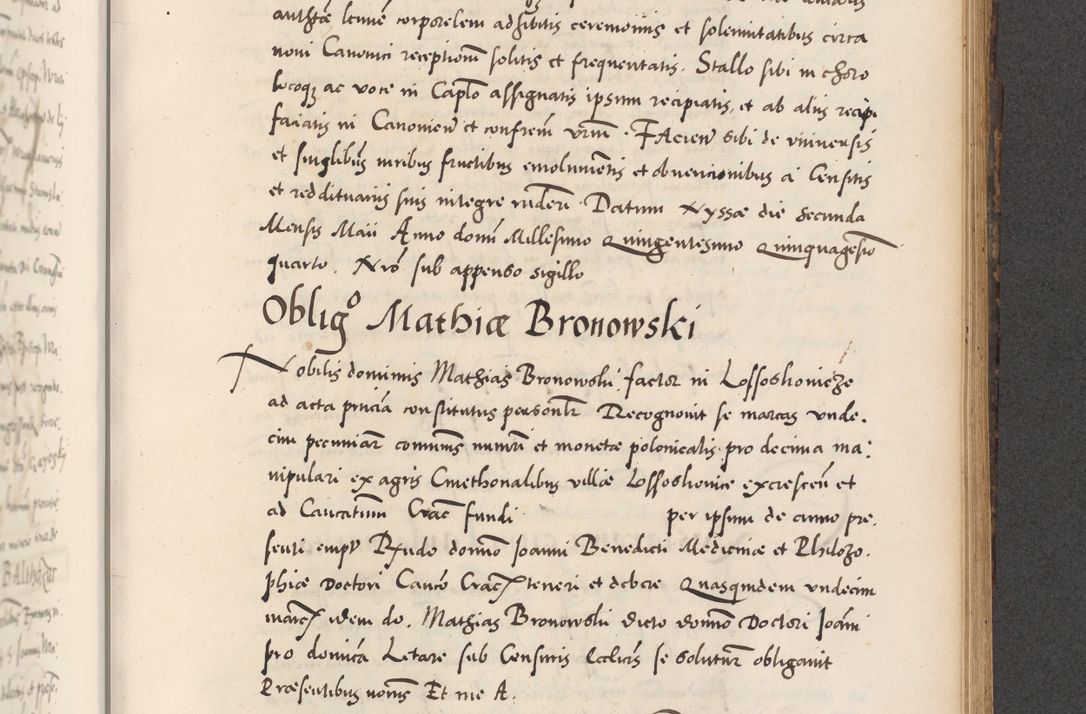 authẽ leniẽ corporelem adhibitis ceremoniis et solennitatibus circa
novi Canonici receptionẽ solitis et frequentatis. Stallo sibi in choro
locoqꝫ ac voce in Capło assignatis ipsum recipiatis, et ab aliis recipi
faciatis in Canonicũ et confrem vrm̃. Facien̄ sibi de universis
et singlibus iuribus fructibus emolumẽtis et obvencionibus ac Censitis
et reddituariis suis integre rñderi. Datum Nyssae die Secunda
Mensis Maii Anno domĩ Millesimo Quingentesimo Quinquagesiõ
quarto. Nr̃o sub appenso sigillo
Obligo Mathiæ Bronowski
Nobilis dominus Mathias Bronowski, factor in Lossoskonicze
ad acta pñcia constitutus personlr Recognovit se marcas unde,
cim pecuniarũ comunis numeri et monetæ polonicalis pro decima ma:
nipulari ex agris Cmethonalibus villæ Lossoskonice excrescen̄ et
ad Canonicatum Crac̃ fundi per ipsum de anno pre,
senti empt̃ Rñdo domno Joanni Benedicti Medicinæ et Philozo,
phiæ Doctori Canco Crac̃ teneri et debere Quasquidem undecim
marc̃ idem do. Mathias Bronowski dicto domno Doctori Joãni
pro domica Letare sub Censuris Ecclicis se soluturũ obligavit
Præsentibus nonis Et me A.